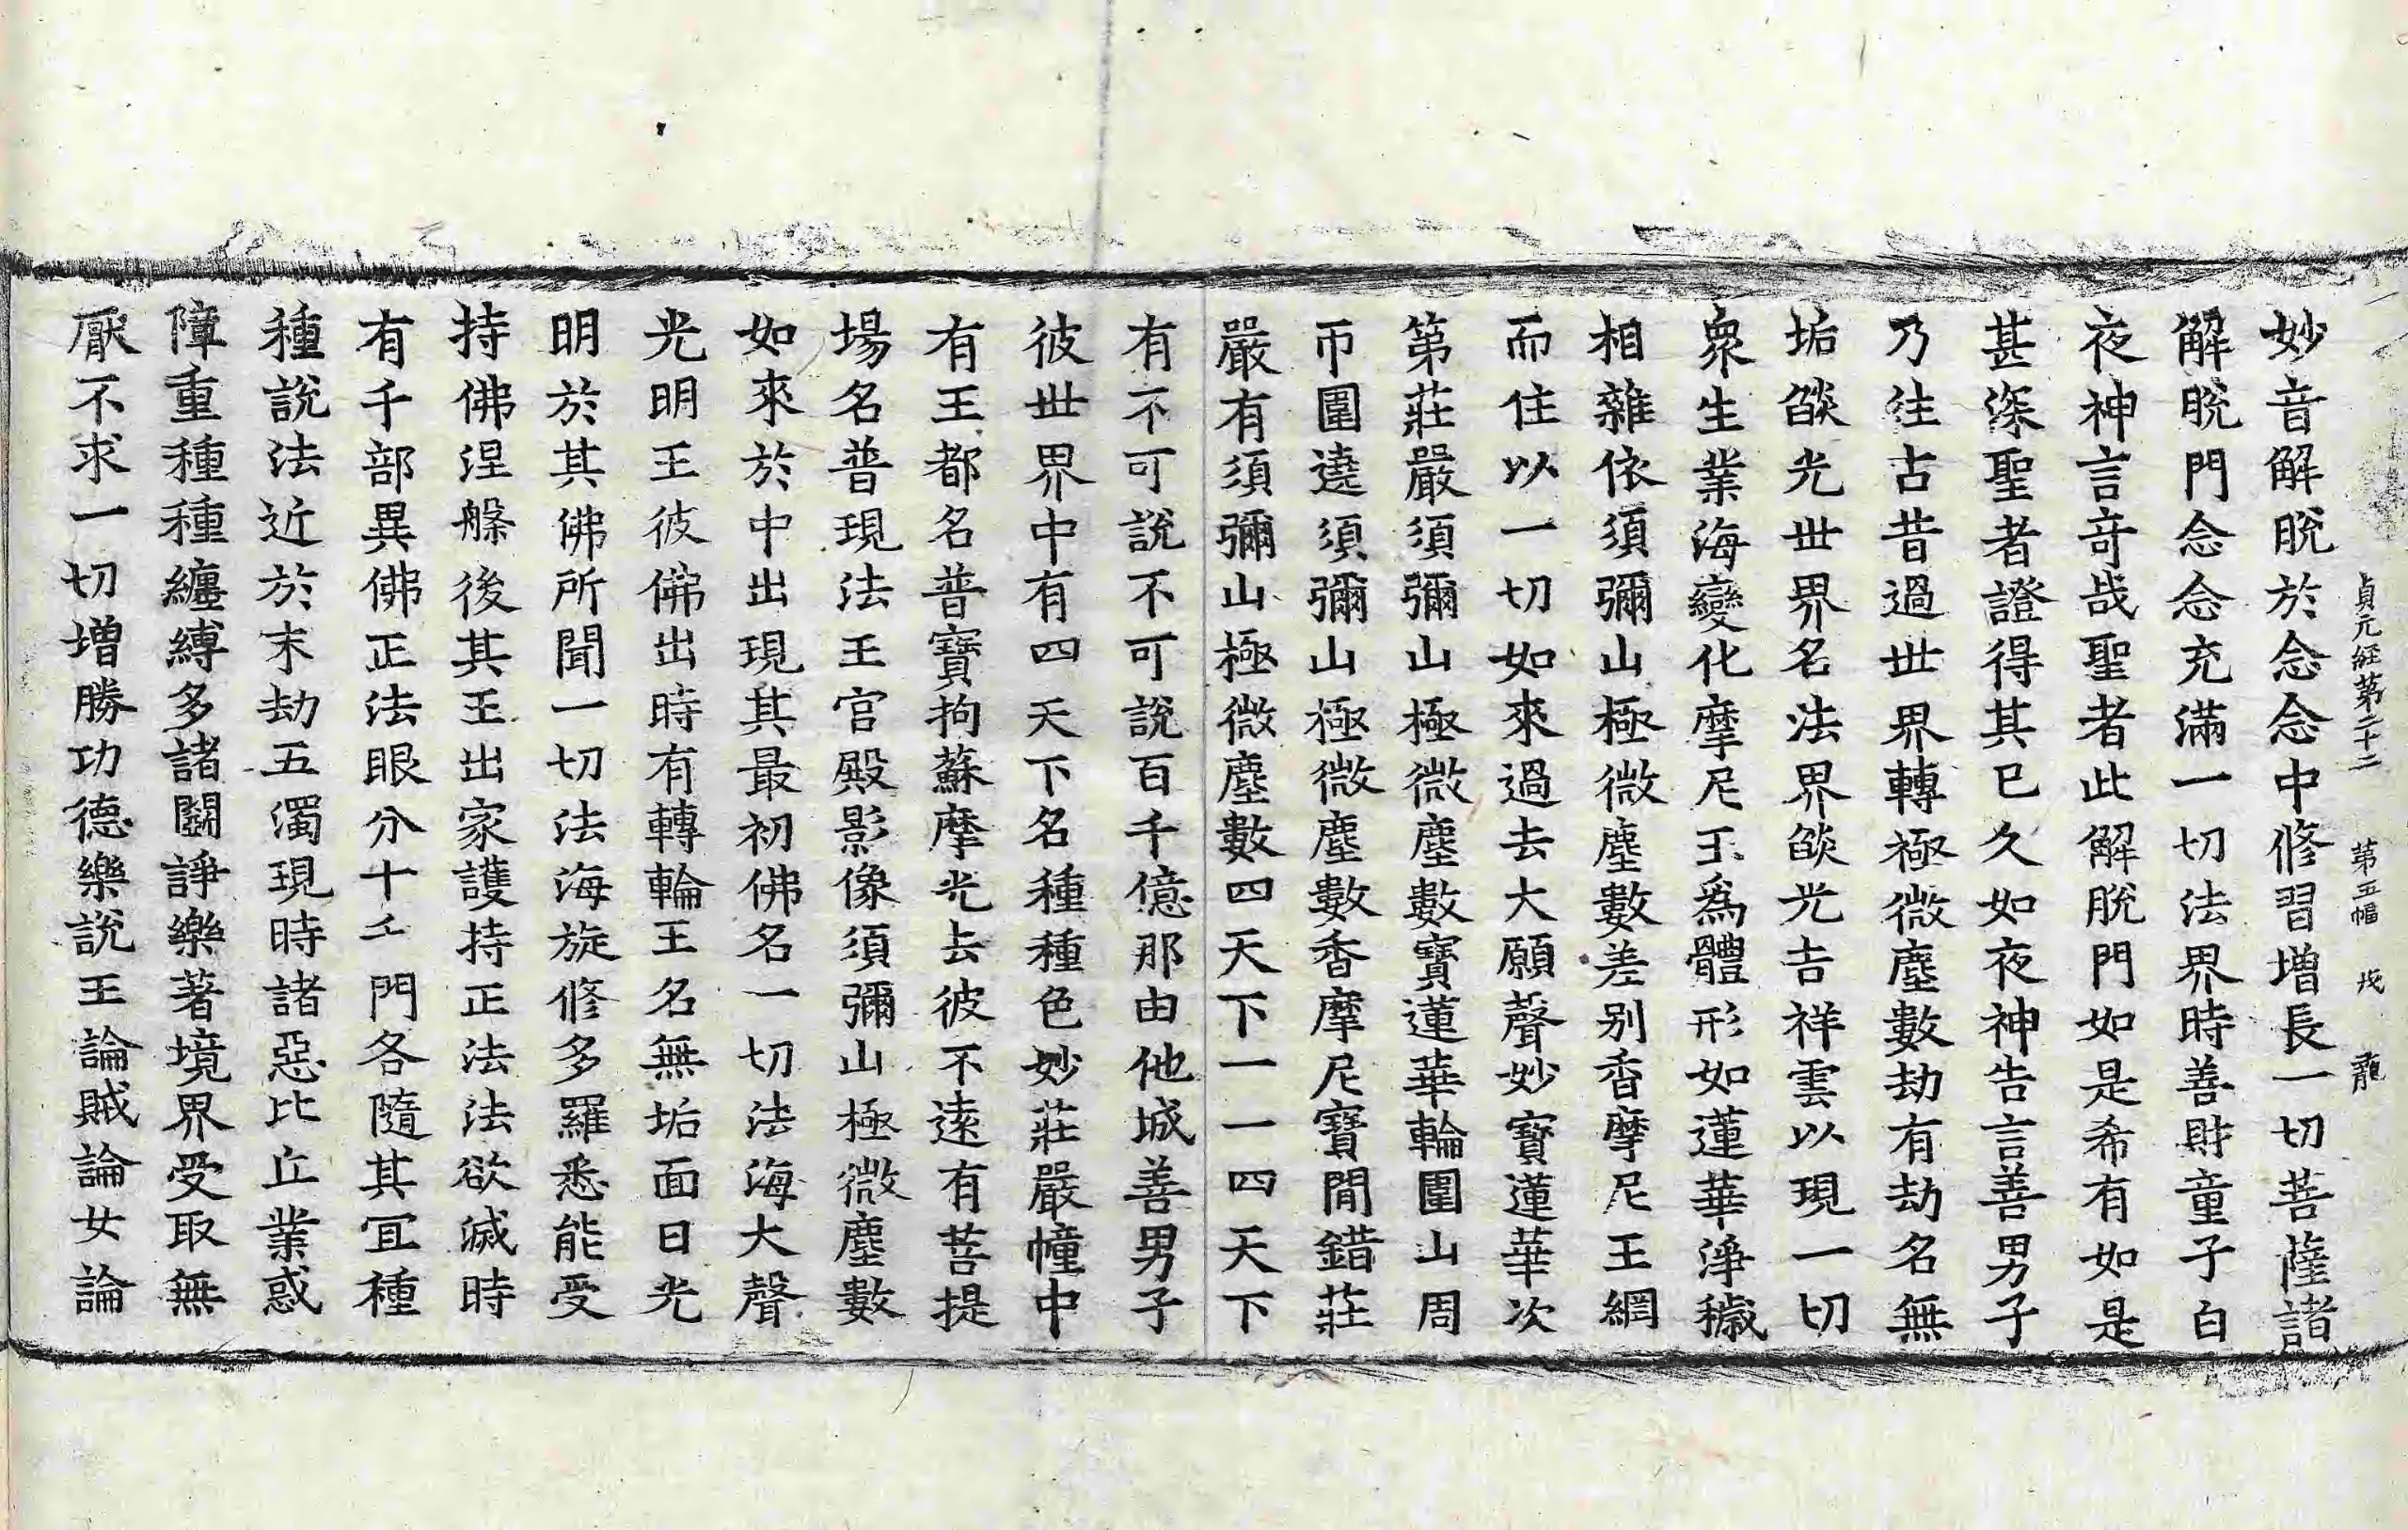 貞元経第二十二 第五幅 戌 龍
妙音解脫於念念中修習增長一切菩薩諸
解脫門念念充滿一切法界時善財童子白
夜神言竒㢤聖者此解脫門如是希有如是
甚深聖者證得其已久如夜神告言善男子
乃往古昔過世界轉極微塵數劫有劫名無
垢燄光世界名法界燄光吉祥雲以現一切
衆生業海變化摩尼王爲體形如蓮華淨穢
相雜依須彌山極微塵數差別香摩尼王網
而住以一切如來過去大願聲妙寶蓮華次
第莊嚴須彌山極微塵數寶蓮華輪圍山周
帀圍遶須彌山極微塵數香摩尼寶閒錯莊
嚴有須彌山極微塵數四天下一一四天下
有不可說不可說百千億那由他城善男子
彼世界中有四天下名種種色妙莊嚴幢中
有王都名普寶拘蘇摩光去彼不遠有菩提
場名普現法王宮殿影像須彌山極微塵數
如來於中出現其最初佛名一切法海大聲
光明王彼佛出時有轉輪王名無垢面日光
明於其佛所聞一切法海旋修多羅悉能受
持佛涅槃後其王出家護持正法法欲滅時
有千部異佛正法眼分十千門各隨其冝種
種說法近於末劫五濁現時諸惡比丘業惑
障重種種纏縛多諸鬬諍樂著境界受取無
厭不求一切增勝功德樂說王論賊論女論